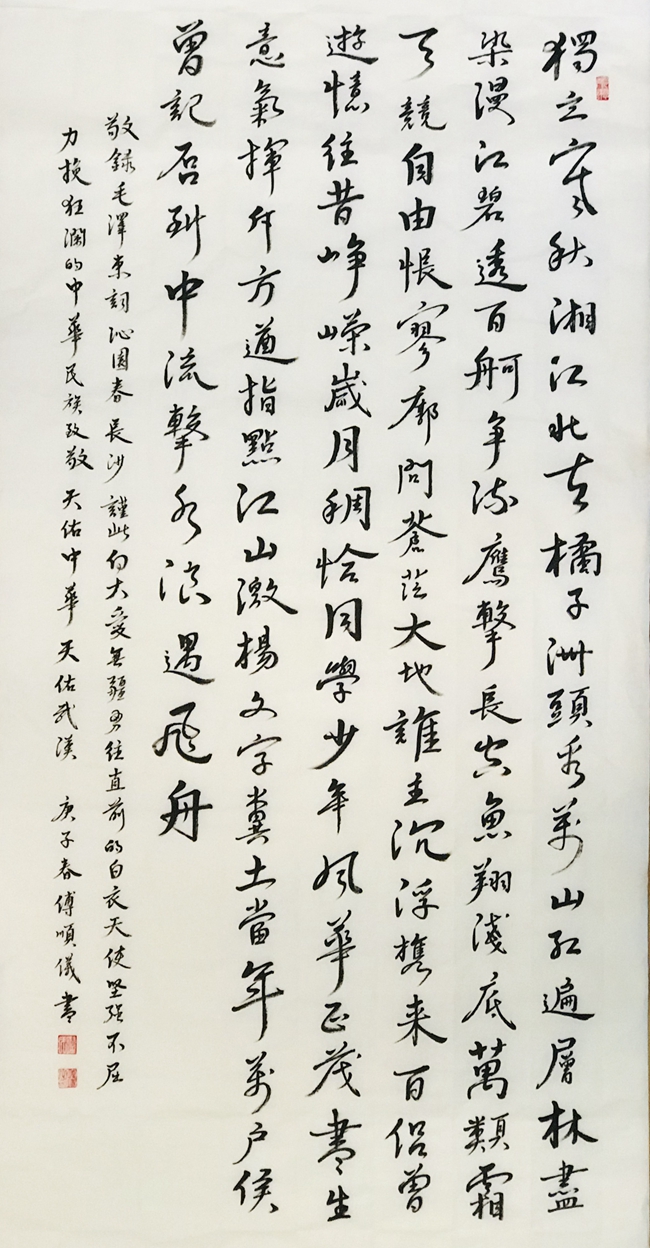 獨立寒秋湘江北去橘子洲頭看萬山紅遍層林盡
染漫江碧透百舸爭流鷹擊長空魚翔淺底萬類霜
天競自由悵寥廓問蒼茫大地誰主沉浮攜来百侶曾
遊憶往昔崢嶸歲月稠恰同學少年風華正茂書生
意氣揮斥方遒指點江山激揚文字糞土當年萬戶侯
曾記否到中流擊水浪遏飛舟
敬錄毛澤東詞沁園春長沙謹此向大愛無疆勇往直前的白衣天使堅强不屈
力挽狂瀾的中華民族致敬 天佑中華天佑武漢 庚子春傅順儀書